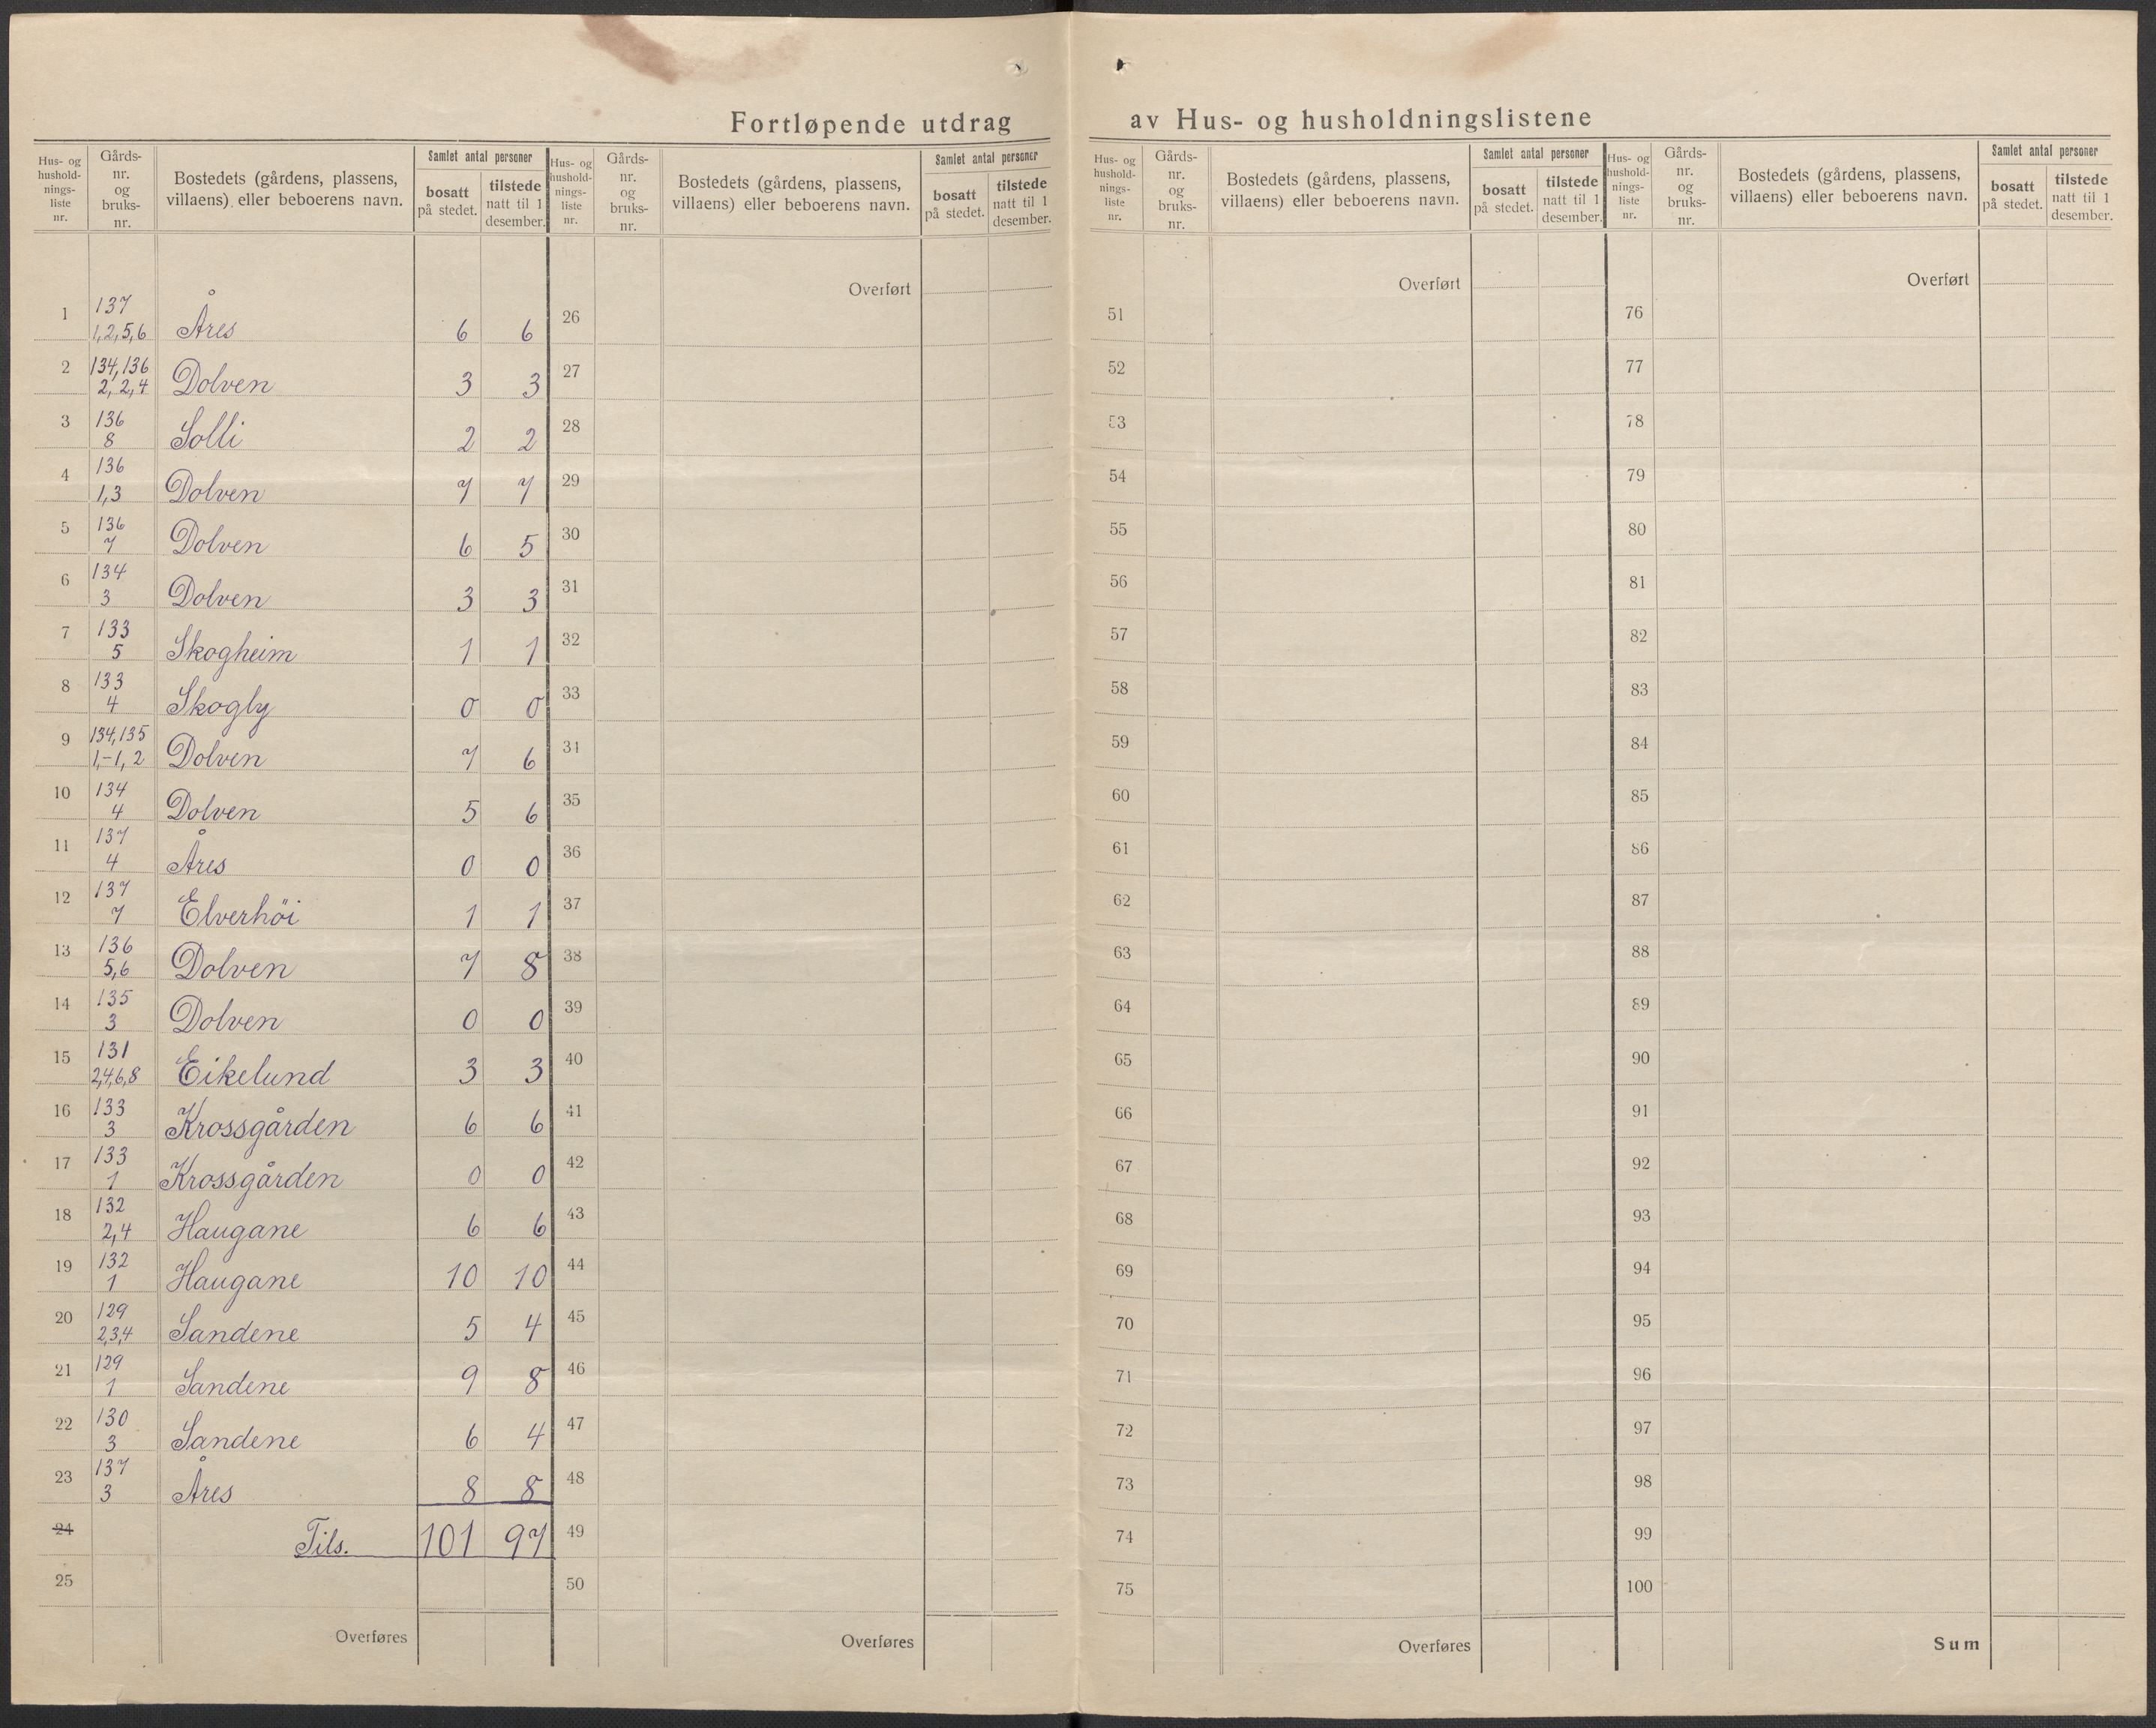 Fortløpende utdrag av Hus- og husholdningslistene
Hus- og hushold-nings-liste nr. Gårds-nr. og bruks-nr. Bostedets (gårdens, plassens, villaens) eller beboerens navn. Samlet antal personer bosatt på stedet. tilstede natt til 1 desember.
Hus- og hushold-nings-liste nr. Gårds-nr. og bruks-nr. Bostedets (gårdens, plassens, villaens) eller beboerens navn. Samlet antal personer bosatt på stedet. tilstede natt til 1 desember.
Hus- og hushold-nings-liste nr. Gårds-nr. og bruks-nr. Bostedets (gårdens, plassens, villaens) eller beboerens navn. Samlet antal personer bosatt på stedet. tilstede natt til 1 desember.
Hus- og hushold-nings-liste nr. Gårds-nr. og bruks-nr. Bostedets (gårdens, plassens, villaens) eller beboerens navn. Samlet antal personer bosatt på stedet. tilstede natt til 1 desember.
Overført Overført Overført
1 137 1,2,5,6 Åres 6 6 26 51 76
2 134,136 2, 2,4 Dolven 3 3 27 52 77
3 136 8 Solli 2 2 28 53 78
4 136 1,3 Dolven 7 7 29 54 79
5 136 7 Dolven 6 5 30 55 80
6 134 3 Dolven 3 3 31 56 81
7 133 5 Skogheim 1 1 32 57 82
8 133 4 Skogly 0 0 33 58 83
9 134,135 1,-1, 2 Dolven 7 6 34 59 84
10 134 4 Dolven 5 6 35 60 85
11 137 4 Åres 0 0 36 61 86
12 137 7 Elverhöi 1 1 37 62 87
13 136 5,6 Dolven 7 8 38 63 88
14 135 3 Dolven 0 0 39 64 89
15 131 2,4,6,8 Eikelund 3 3 40 65 90
16 133 3 Krossgården 6 6 41 66 91
17 133 1 Krossgården 0 0 42 67 92
18 132 2,4 Haugane 6 6 43 68 93
19 132 1 Haugane 10 10 44 69 94
20 129 2,3,4 Sandene 5 4 45 70 95
21 129 1 Sandene 9 8 46 71 96
22 130 3 Sandene 6 4 47 72 97
23 137 3 Åres 8 8 48 73 98
24 Tils. 101 97 49 74 99
25 50 75 100
Overføres Overføres Overføres Sum